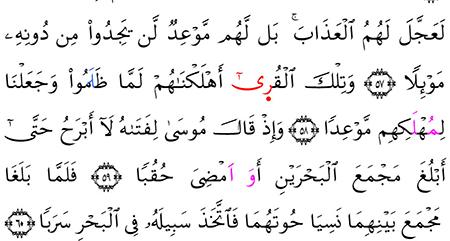 لَعَجَّلَ لَهُمُ ٱلْعَذَابَ ۚ بَل لَّهُم مَّوْعِدٌ لَّن يَجِدُوا۟ مِن دُونِهِۦ
مَوْئِلًا ﴿٥٧﴾ وَتِلْكَ ٱلْقُر۪ىٰٓ أَهْلَكْنَٰهُمْ لَمَّا ظَلَمُوا۟ وَجَعَلْنَا
لِمُهْلَكِهِم مَّوْعِدًا ﴿٥٨﴾ وَإِذْ قَالَ مُوسَىٰ لِفَتَىٰهُ لَآ أَبْرَحُ حَتَّىٰٓ
أَبْلُغَ مَجْمَعَ ٱلْبَحْرَيْنِ أَوَ اَمْضِىَ حُقُبًا ﴿٥٩﴾ فَلَمَّا بَلَغَا
مَجْمَعَ بَيْنِهِمَا نَسِيَا حُوتَهُمَا فَٱتَّخَذَ سَبِيلَهُۥ فِى ٱلْبَحْرِ سَرَبًا ﴿٦٠﴾